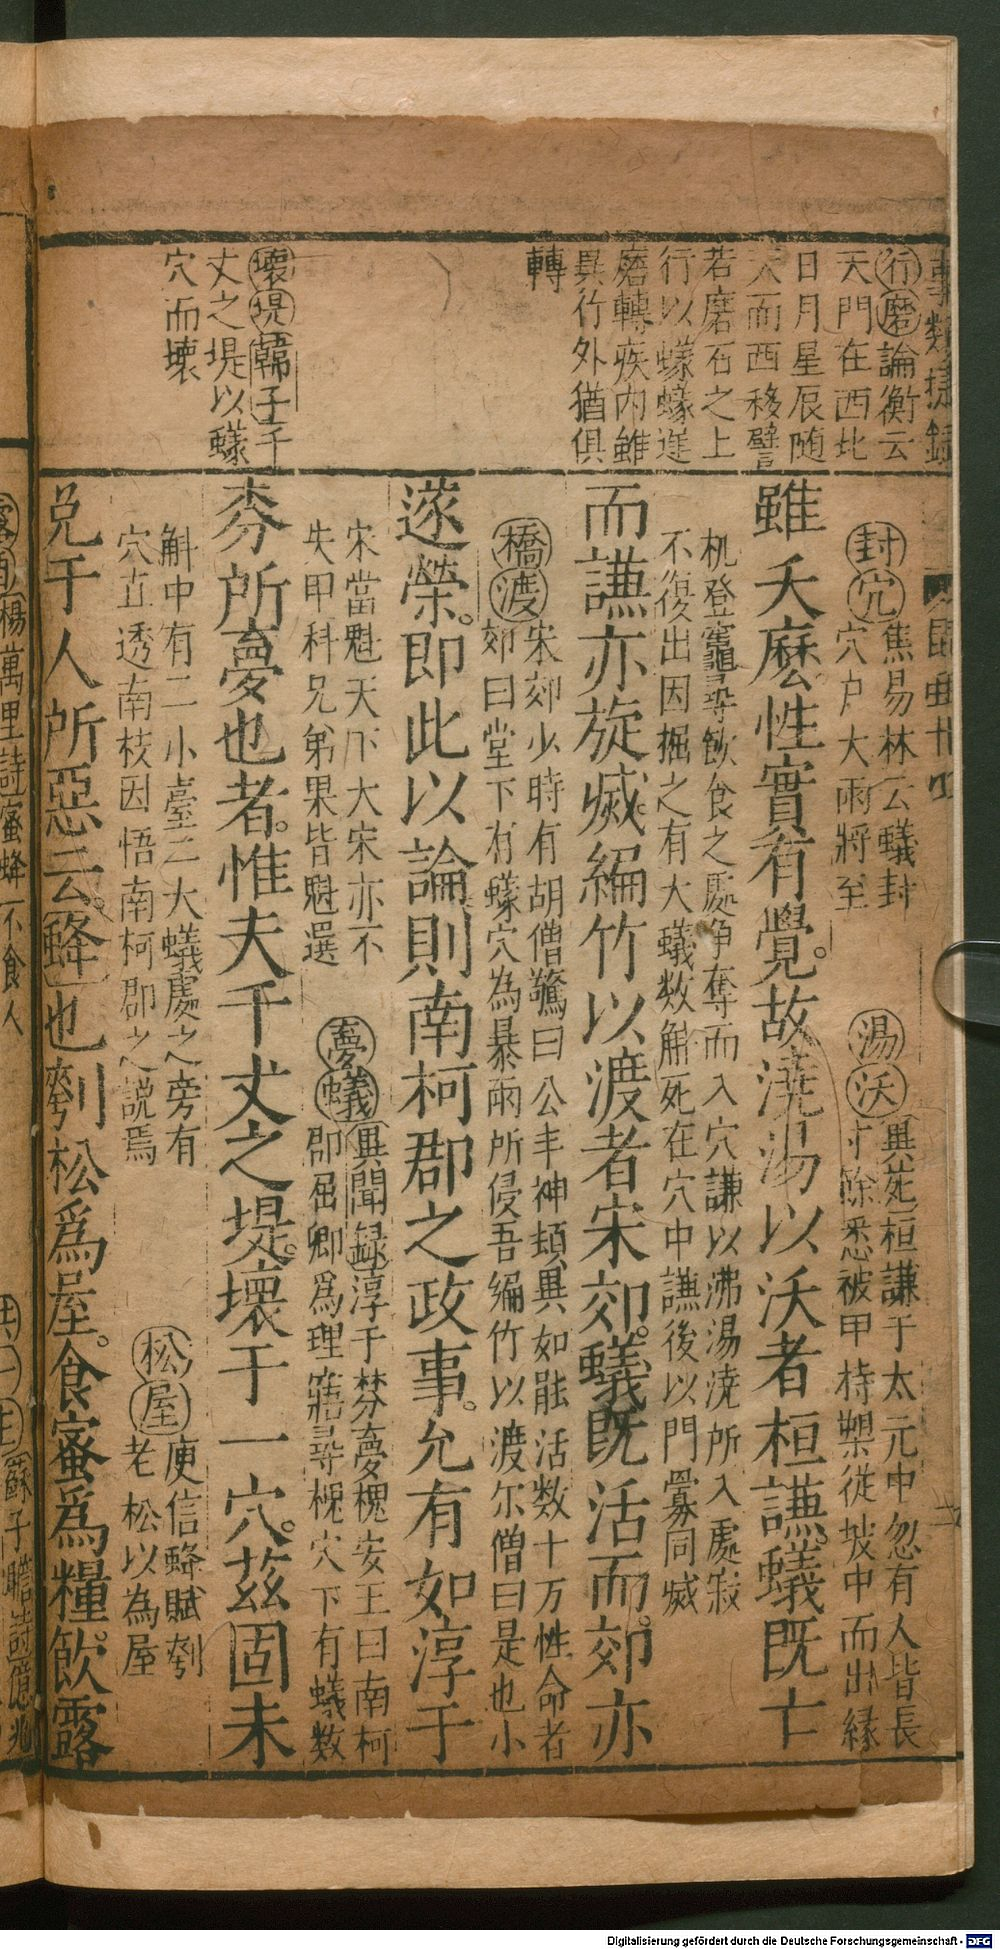 事類捷錄
行磨論衡云
天門在西北
日月星辰随
天而西移譬
若磨石之上
行以蟻蟓進
磨轉疾内雖
異行外猶俱
轉
壞堤韓子千
丈之堤以蟻
穴而壞
封穴焦易林云蟻封
穴户大雨將至
湯沃異苑桓謙于太元中忽有人皆長
寸除悉被甲持槊從坡中而出緣
雖夭麽性實有覺故澆湯以沃者桓謙蟻既亡
机登竈尋飲食之處争奪而入穴謙以沸湯澆所入處寂
不復出因掘之有大蟻数斛死在穴中謙後以門釁同烕
而謙亦旋烕編竹以渡者宋郊蟻既活而郊亦
橋渡宋郊少時有胡僧驚曰公丰神頓異如能活数十万性命者
郊曰堂下有蟻穴為暴雨所侵吾編竹以渡尔僧曰是也小
遂榮即此以論則南柯郡之政事允有如淳于
宋當魁天下大宋亦不
失甲科兄弟果皆魁選
夢蟻異聞録淳于棼夢槐安王曰南柯
郡屈卿爲理寤尋槐穴下有蟻数
棼所夢也者惟夫千丈之堤壞于一穴茲固未
斛中有二小臺二大蟻處之旁有
穴直透南枝因悟南柯郡之説焉
松屋庾信蜂賦刳
老松以為屋
免于人所惡云蜂也刳松爲屋食蜜爲糧飲露
楊萬里詩蜜蜂不食人
蘇子瞻詩
Digitalisierung gefördert durch die Deutsche Forschungsgemeinschaft - DFG